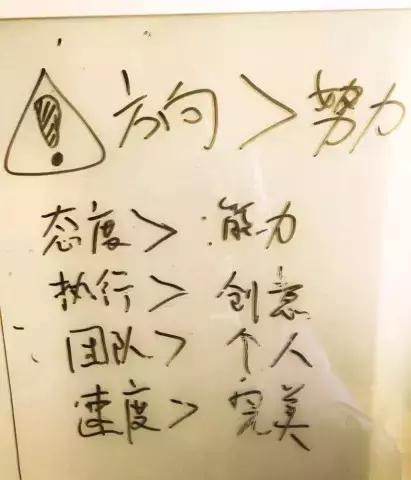 方向 > 努力
态度 > 能力
执行 > 创意
团队 > 个人
速度 > 完美